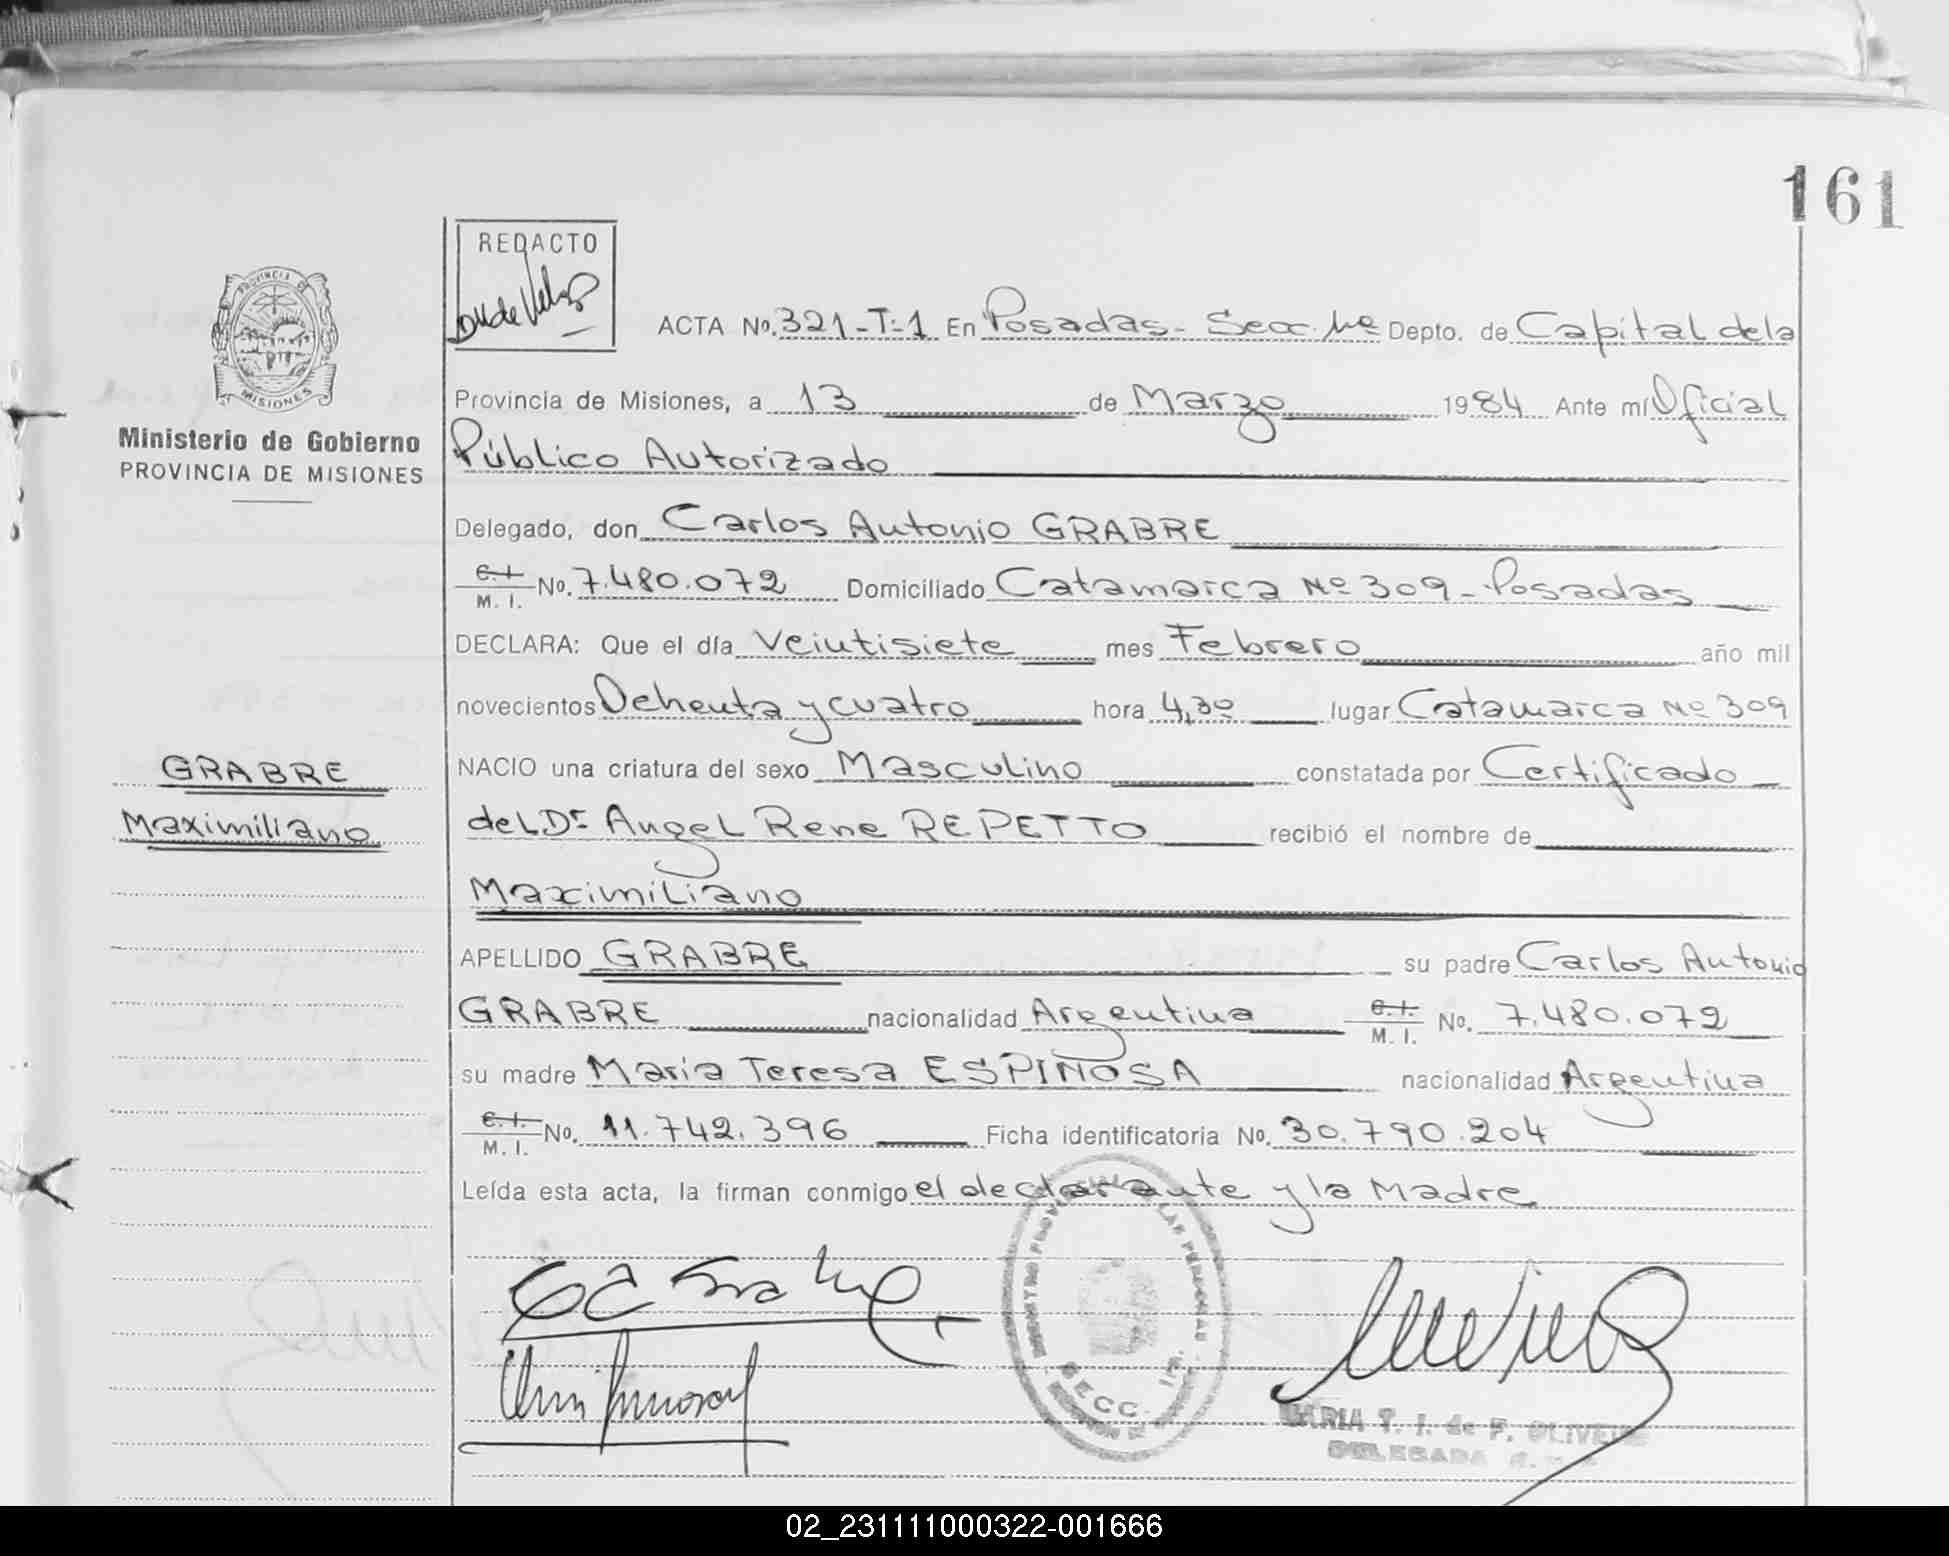 161
REDACTO
PROVINCIA DE
MISIONES
Ministerio de Gobierno
PROVINCIA DE MISIONES
ACTA No. 321-T-1 En Posadas- Secc. 1ra Depto. de Capital de la
Provincia de Misiones, a 13 de Marzo 1984 Ante mí Oficial
Público Autorizado
Delegado, don Carlos Antonio GRABRE
C. I. / M. I. No. 7.480.072 Domiciliado Catamarca Nº 309 - Posadas
DECLARA: Que el día Veintisiete mes Febrero año mil
novecientos Ochenta y cuatro hora 4,30 lugar Catamarca Nº 309
GRABRE
Maximiliano
NACIO una criatura del sexo Masculino constatada por Certificado
del Dr Angel Rene REPETTO recibió el nombre de
Maximiliano
APELLIDO GRABRE su padre Carlos Antonio
GRABRE nacionalidad Argentina C. I. / M. I. No. 7.480.072
su madre Maria Teresa ESPINOSA nacionalidad Argentina
C. I. / M. I. No. 11.742.396 Ficha identificatoria No. 30.790.204
Leída esta acta, la firman conmigo el declarante y la Madre
SECC. 1ra.
MARIA T. I. de F. OLIVEIRA
DELEGADA
02_231111000322-001666